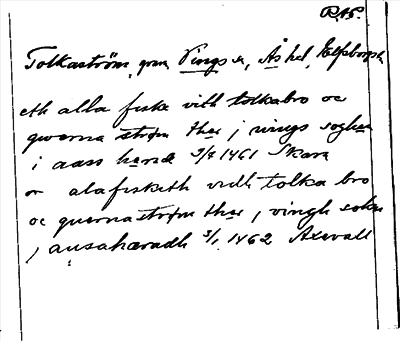 RAP.
Tolkaström, gnm Vings sn, Ås hd, Elfsborgs ln
eth alla fiske vith tolkabro oc
qwerna strøm thær j wings soghn
i aass hæradh 3/7 1461 Skara
or alafisketh vidh tolka bro
oc quernastrøm thær j vingh sokn
j ausahæradh 3/1 1462 Axevall